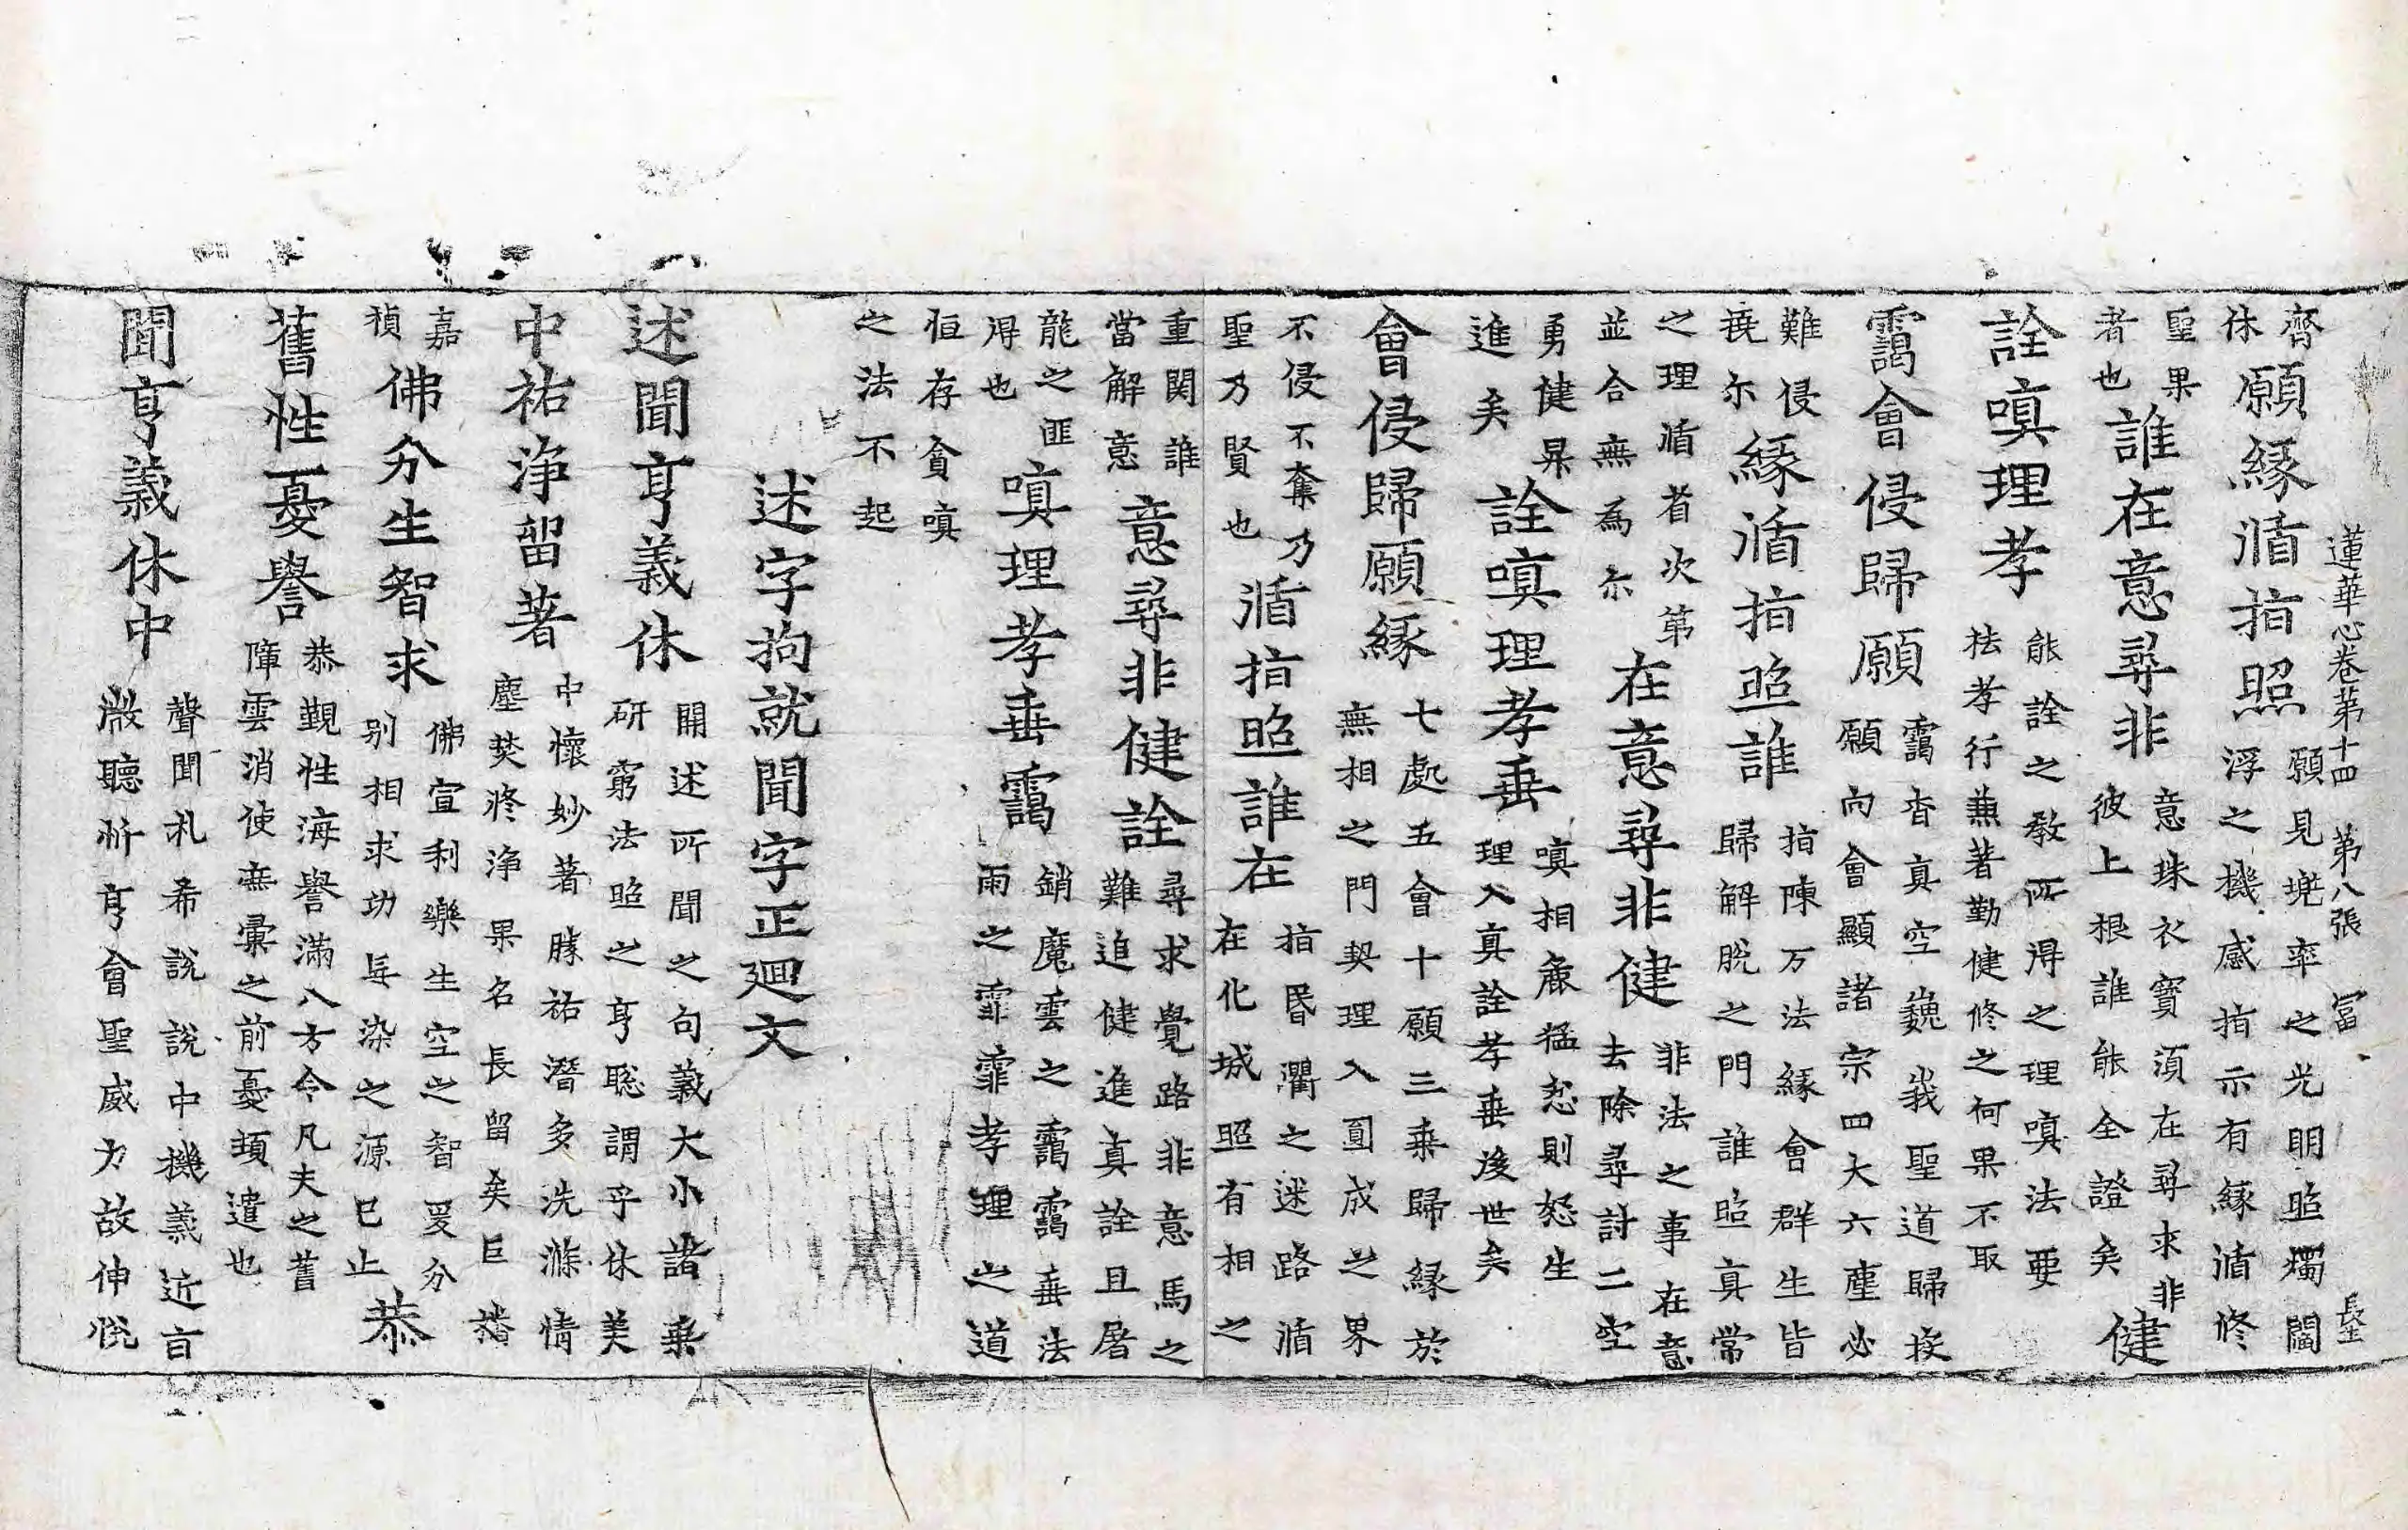 蓮華心卷第十四 第八張 冨 長
齊休願緣循指照願見塊率之光明照燭閻浮之機感指示有緣循修
聖果者也誰在意尋非意珠衣寳須在尋求非彼上根誰能全證矣健
詮嗔理孝能詮之教所得之理嗔法要祛孝行兼著勤健修之何果不取
靄會侵歸願靄杳真空巍峩聖道歸挨願向會顯諸宗四大六塵必
難侵撓尒緣循指照誰指陳万法緣會群生皆歸解脫之門誰照真常
之理循省次第並合無為尒在意尋非健非法之事在意去除尋討二空
勇健杲進矣詮嗔理孝垂嗔相麁猛忿則怒生理入真詮孝垂後世矣
會侵歸願緣七處五會十願三乘歸緣於無相之門契理入圓成之界
不侵不奪乃聖乃賢也循指照誰在指昬衢之迷路循在化城照有相之
重関誰當解意意尋非健詮尋求覺路非意馬之難追健進真詮且屠
龍之匪得也嗔理孝垂靄銷魔雲之靄靄垂法雨之霏霏孝理之道
恒存貪嗔之法不起
述字拘就聞字正廻文
述聞亨義休開述所聞之句義大小諸乘研窮法照之亨聡謂乎休美
中祐淨留著中懷妙著勝祐潛多洗滌情塵焚修淨果名長留矣巨
嘉禎佛分生智求佛宣利樂生空之智爰分別相求功每染之源巳止恭
舊性憂譽恭觀性海譽滿八方令凡夫之舊障雲消使無彙之前憂頓遣也
聞亨義休中聲聞札希說說中機義近言激聽忻亨會聖威力故伸悅